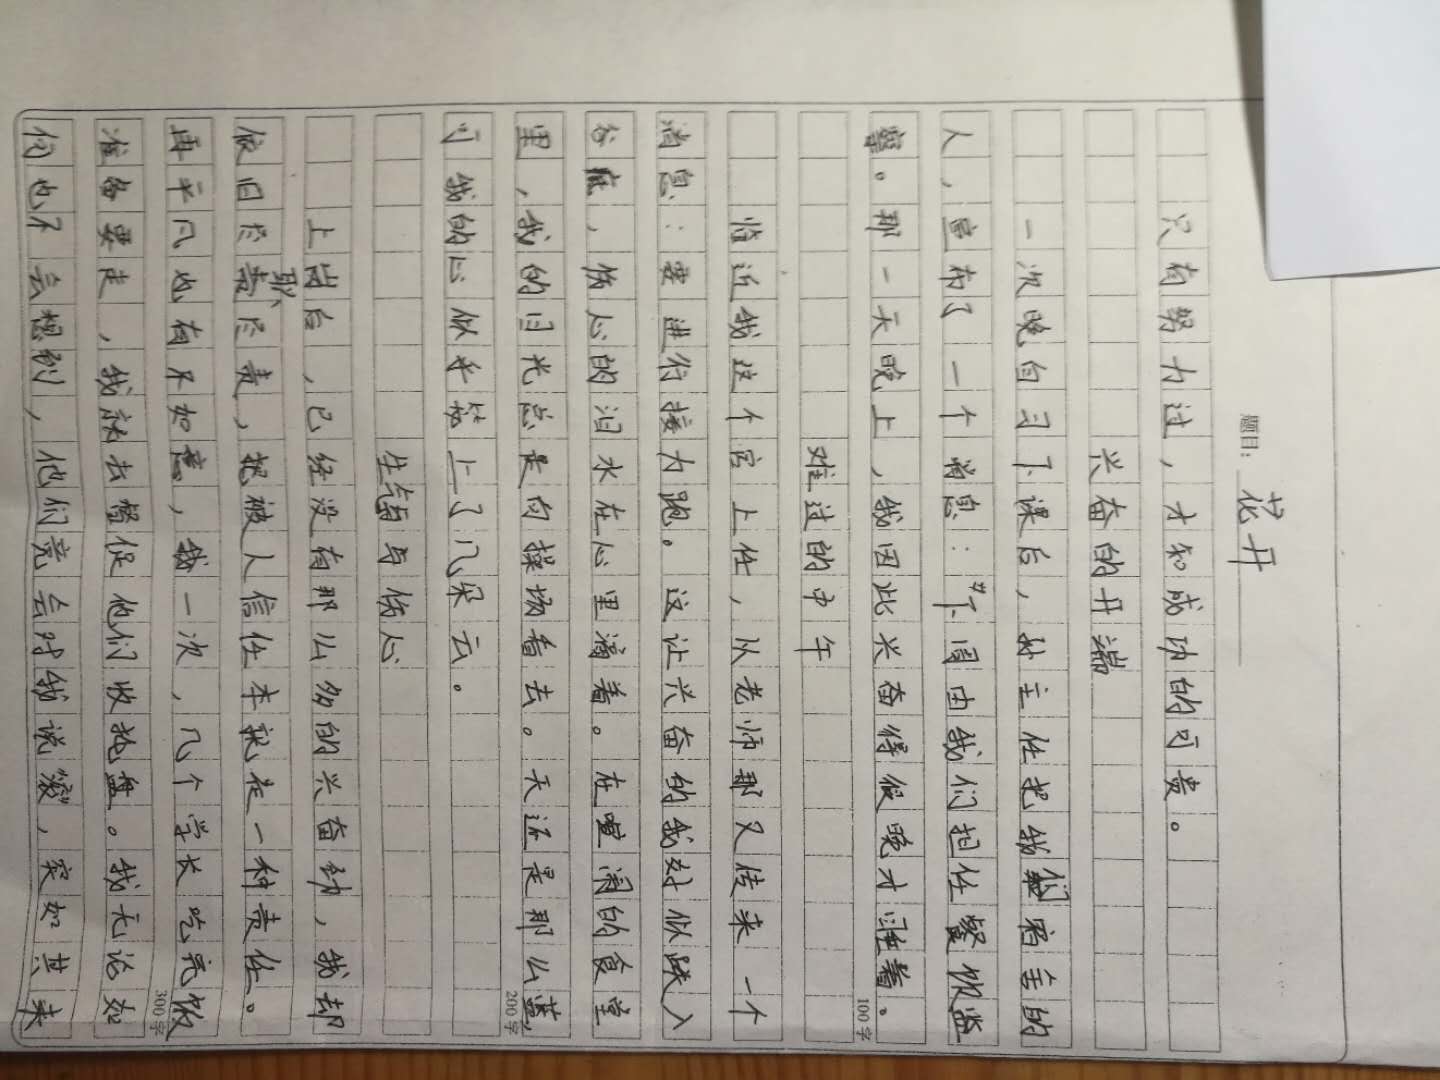 题目：花开
只有努力过，才知成功的可贵。
兴奋的开端
一次晚自习下课后，班主任把我们宿舍的
人，宣布了一个消息："下周由我们担任餐饭监
察。那一天晚上，我因此兴奋得很晚才睡着。
100字
难过的中午
临近我这个官上任，从老师那又传来一个
消息：要进行接力跑。这让兴奋的我好似跌入
谷底，伤心的泪水在心里滴着。在喧闹的食堂
里，我的目光总是向操场看去。天还是那么蓝，
200字
可我的心似乎笼上了几朵云。
生气与伤心
上岗后，已经没有那么多的兴奋劲，我却
依旧尽职尽责，把被人信任本就是一种责任。
再平凡也有不如意，我一次，几个学长吃完饭
300字
准备要走，我就去督促他们收拖盘。我无论如
何也不会想到，他们竟会对我说滚，突如其来